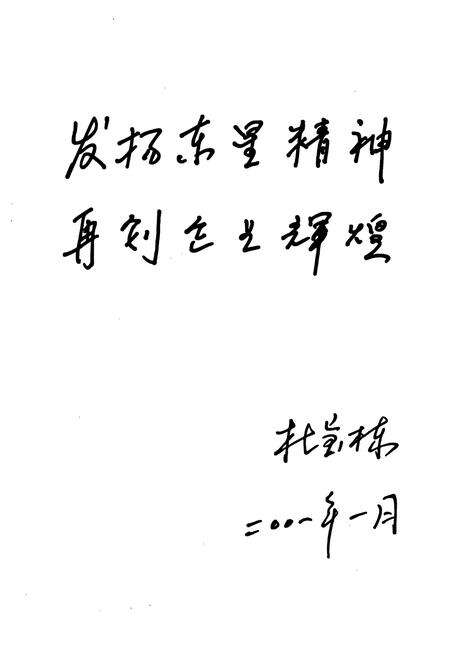 发扬东星精神
再创企业輝煌
杜宝栋
二〇〇一年一月